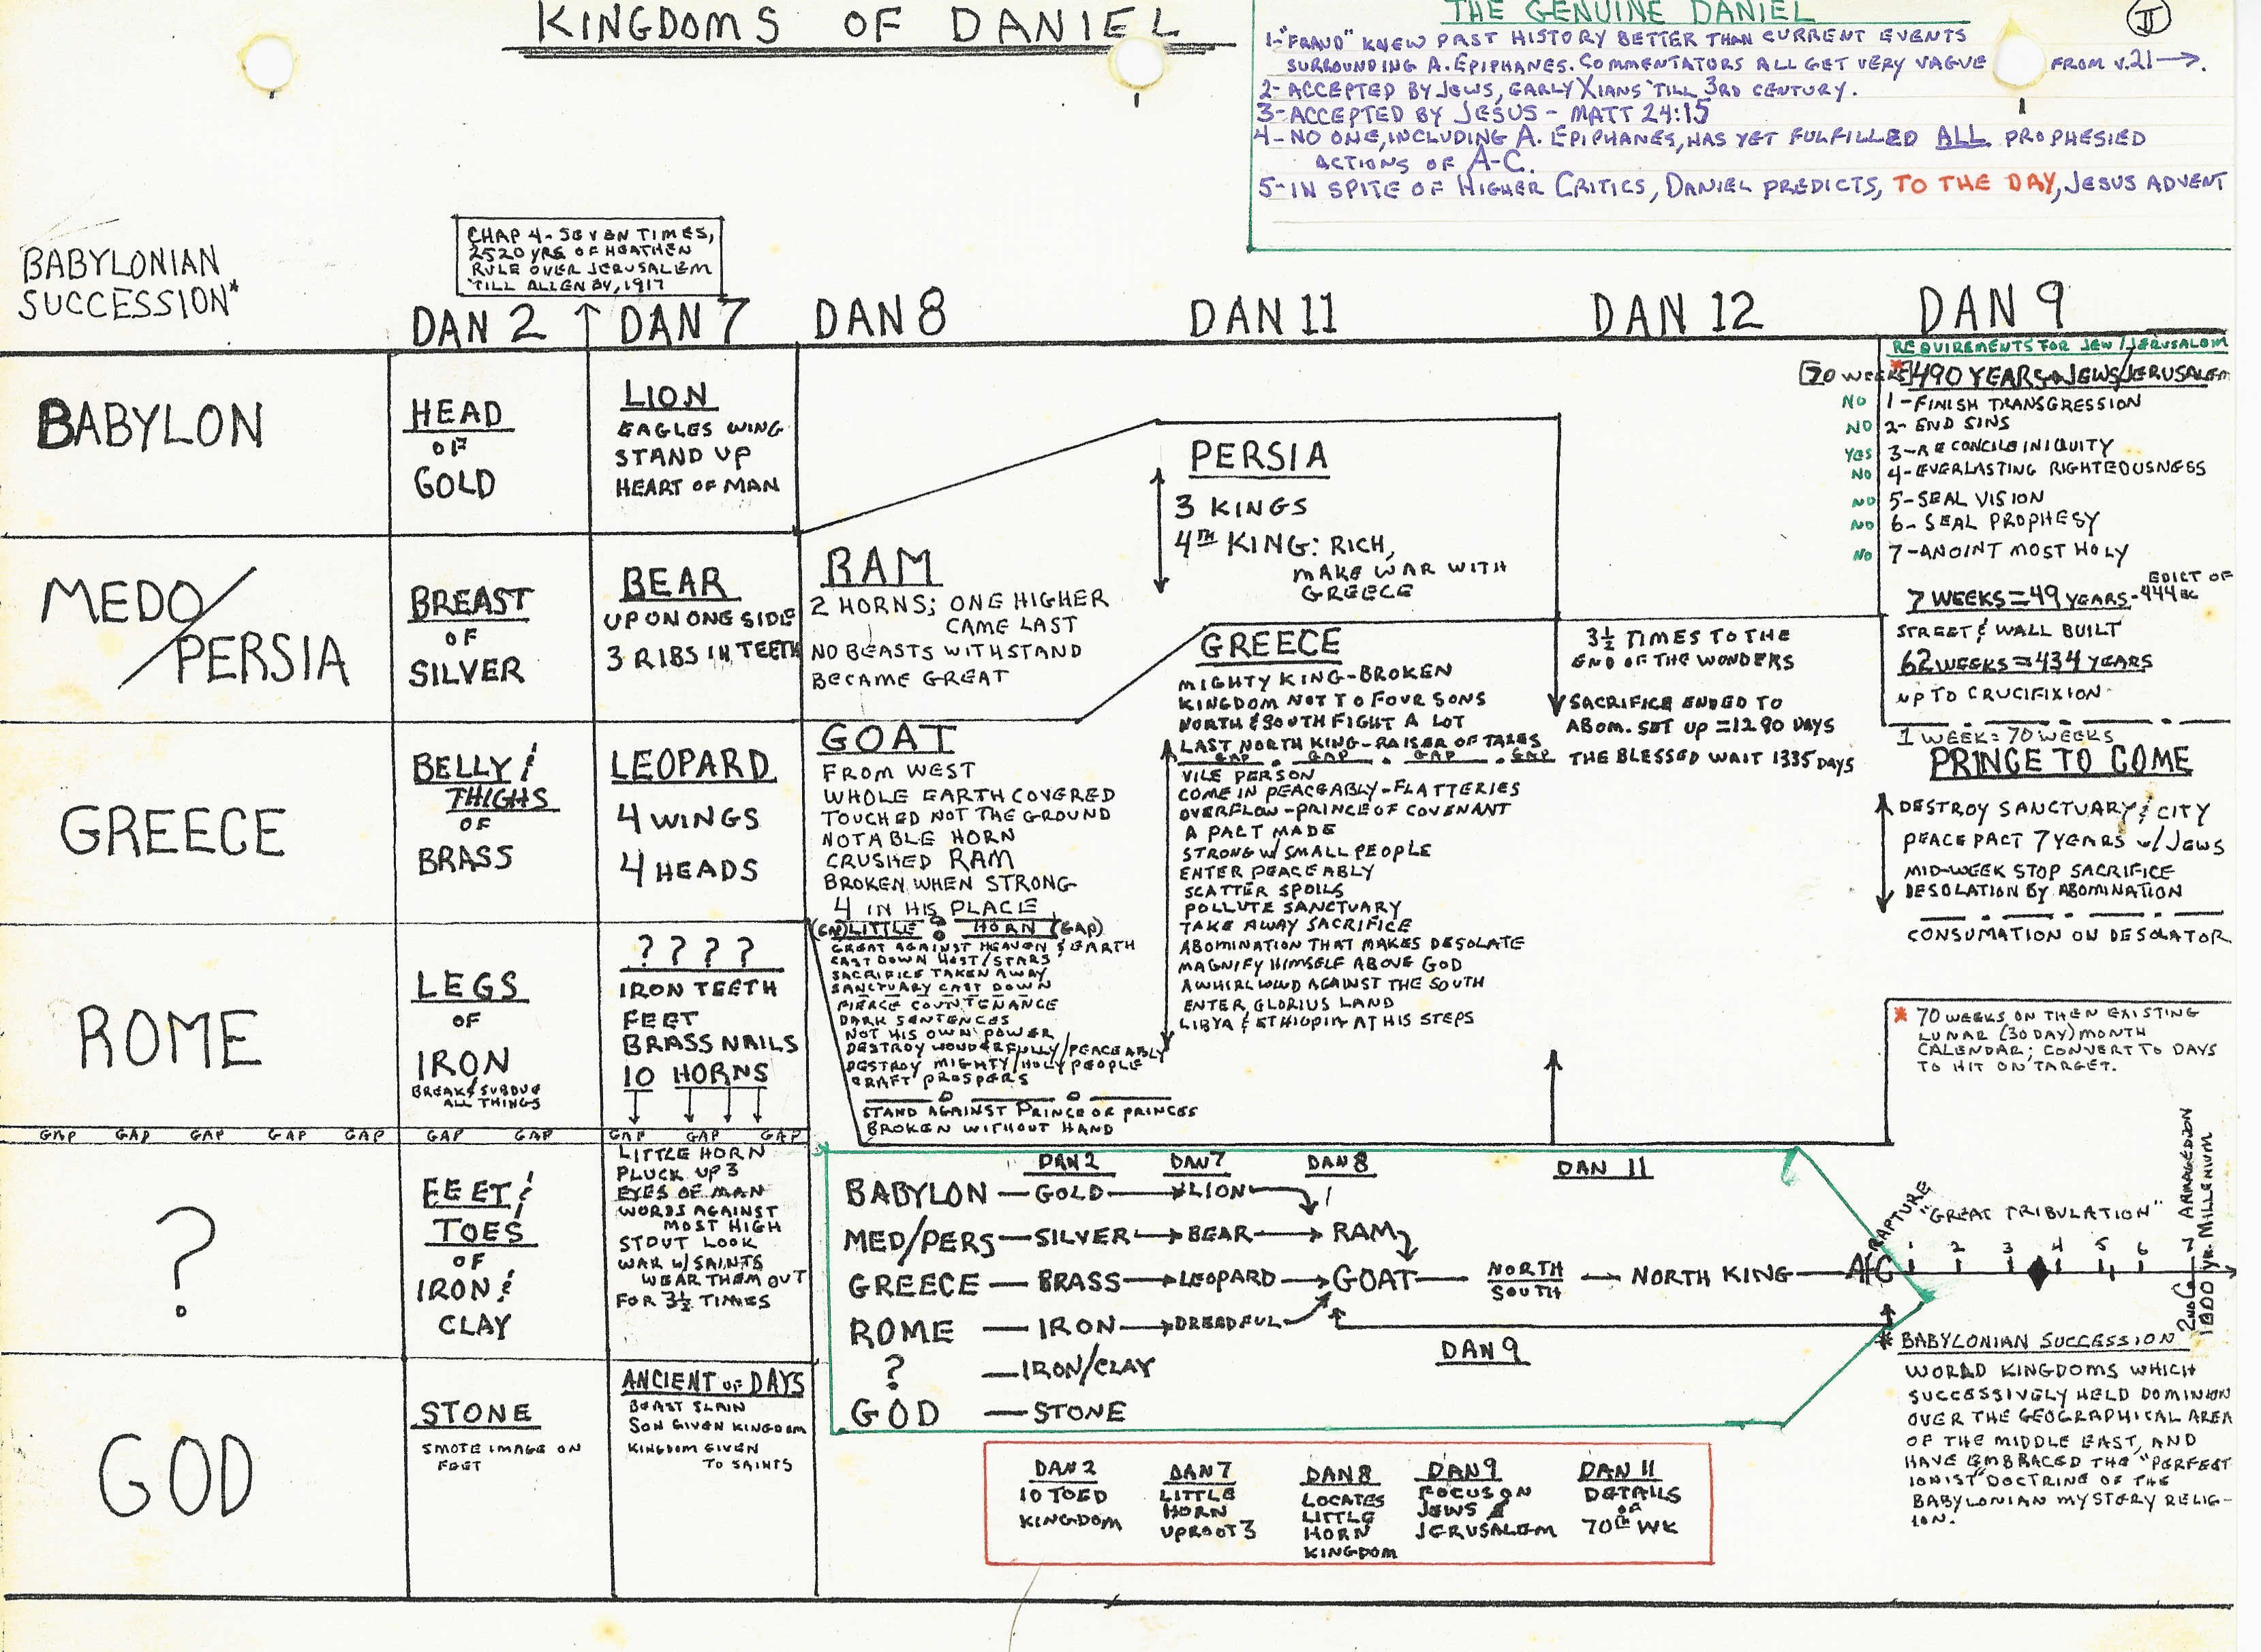 KINGDOMS OF DANIEL
THE GENUINE DANIEL
II
1-"FRAUD" KNEW PAST HISTORY BETTER THAN CURRENT EVENTS
SURROUNDING A. EPIPHANES. COMMENTATORS ALL GET VERY VAGUE FROM V.21→.
2-ACCEPTED BY JEWS, EARLY XIANS 'TILL 3RD CENTURY.
3-ACCEPTED BY JESUS - MATT 24:15
4-NO ONE, INCLUDING A. EPIPHANES, HAS YET FULFILLED ALL PROPHESIED
ACTIONS OF A-C.
5-IN SPITE OF HIGHER CRITICS, DANIEL PREDICTS, TO THE DAY, JESUS ADVENT
CHAP 4- SEVEN TIMES,
2520 YRS OF HEATHEN
RULE OVER JERUSALEM
'TILL ALLENBY, 1917
BABYLONIAN
SUCCESSION*
DAN 2
DAN 7
DAN 8
DAN 11
DAN 12
DAN 9
BABYLON
HEAD
OF
GOLD
LION
EAGLES WING
STAND UP
HEART OF MAN
MEDO/
PERSIA
BREAST
OF
SILVER
BEAR
UP ON ONE SIDE
3 RIBS IN TEETH
GREECE
BELLY &
THIGHS
OF
BRASS
LEOPARD
4 WINGS
4 HEADS
ROME
LEGS
OF
IRON
BREAK & SUBDUE
ALL THINGS
? ? ? ?
IRON TEETH
FEET
BRASS NAILS
10 HORNS
GAP GAP GAP GAP GAP GAP GAP GAP GAP GAP
?
FEET &
TOES
OF
IRON &
CLAY
LITTLE HORN
PLUCK UP 3
EYES OF MAN
WORDS AGAINST
MOST HIGH
STOUT LOOK
WAR W/ SAINTS
WEAR THEM OUT
FOR 3½ TIMES
GOD
STONE
SMOTE IMAGE ON
FEET
ANCIENT OF DAYS
BEAST SLAIN
SON GIVEN KINGDOM
KINGDOM GIVEN
TO SAINTS
RAM
2 HORNS; ONE HIGHER
CAME LAST
NO BEASTS WITHSTAND
BECAME GREAT
GOAT
FROM WEST
WHOLE EARTH COVERED
TOUCHED NOT THE GROUND
NOTABLE HORN
CRUSHED RAM
BROKEN WHEN STRONG
4 IN HIS PLACE
(GAP) LITTLE HORN (GAP)
GREAT AGAINST HEAVEN & EARTH
CAST DOWN HOST/STARS
SACRIFICE TAKEN AWAY
SANCTUARY CAST DOWN
FIERCE COUNTENANCE
DARK SENTENCES
NOT HIS OWN POWER
DESTROY WONDERFULLY/PEACEABLY
DESTROY MIGHTY/HOLY PEOPLE
CRAFT PROSPERS
STAND AGAINST PRINCE OF PRINCES
BROKEN WITHOUT HAND
PERSIA
3 KINGS
4TH KING: RICH,
MAKE WAR WITH
GREECE
GREECE
MIGHTY KING-BROKEN
KINGDOM NOT TO FOUR SONS
NORTH & SOUTH FIGHT A LOT
LAST NORTH KING-RAISER OF TAXES
GAP . GAP . GAP . GAP
VILE PERSON
COME IN PEACEABLY-FLATTERIES
OVERFLOW-PRINCE OF COVENANT
A PACT MADE
STRONG W/ SMALL PEOPLE
ENTER PEACEABLY
SCATTER SPOILS
POLLUTE SANCTUARY
TAKE AWAY SACRIFICE
ABOMINATION THAT MAKES DESOLATE
MAGNIFY HIMSELF ABOVE GOD
A WHIRLWIND AGAINST THE SOUTH
ENTER GLORIUS LAND
LIBYA & ETHIOPIA AT HIS STEPS
3½ TIMES TO THE
END OF THE WONDERS
SACRIFICE ENDED TO
ABOM. SET UP = 1290 DAYS
THE BLESSED WAIT 1335 DAYS
REQUIREMENTS FOR JEW/JERUSALEM
[70 WEEKS]*490 YEARS JEWS/JERUSALEM
NO 1-FINISH TRANSGRESSION
NO 2-END SINS
YES 3-RECONCILE INIQUITY
NO 4-EVERLASTING RIGHTEOUSNESS
NO 5-SEAL VISION
NO 6-SEAL PROPHESY
NO 7-ANOINT MOST HOLY
7 WEEKS = 49 YEARS - EDICT OF 444 BC
STREET & WALL BUILT
62 WEEKS = 434 YEARS
UP TO CRUCIFIXION
1 WEEK = 70 WEEKS
PRINCE TO COME
DESTROY SANCTUARY & CITY
PEACE PACT 7 YEARS W/ JEWS
MID-WEEK STOP SACRIFICE
DESOLATION BY ABOMINATION
CONSUMATION ON DESOLATOR
* 70 WEEKS ON THEN EXISTING
LUNAR (30 DAY) MONTH
CALENDAR; CONVERT TO DAYS
TO HIT ON TARGET.
DAN 2 DAN 7 DAN 8 DAN 11
BABYLON — GOLD → LION
MED/PERS — SILVER → BEAR → RAM
GREECE — BRASS → LEOPARD → GOAT — NORTH/SOUTH — NORTH KING — A/C
ROME — IRON → DREADFUL
DAN 9
? — IRON/CLAY
GOD — STONE
RAPTURE
"GREAT TRIBULATION"
1 2 3 4 5 6 7
ARMAGEDDON
2ND C
1000 YR. MILLENIUM
* BABYLONIAN SUCCESSION
WORLD KINGDOMS WHICH
SUCCESSIVELY HELD DOMINION
OVER THE GEOGRAPHICAL AREA
OF THE MIDDLE EAST, AND
HAVE EMBRACED THE "PERFECT
IONIST" DOCTRINE OF THE
BABYLONIAN MYSTERY RELIG-
ION.
DAN 2
10 TOED
KINGDOM
DAN 7
LITTLE
HORN
UPROOT 3
DAN 8
LOCATES
LITTLE
HORN
KINGDOM
DAN 9
FOCUS ON
JEWS &
JERUSALEM
DAN 11
DETAILS
OF
70TH WK